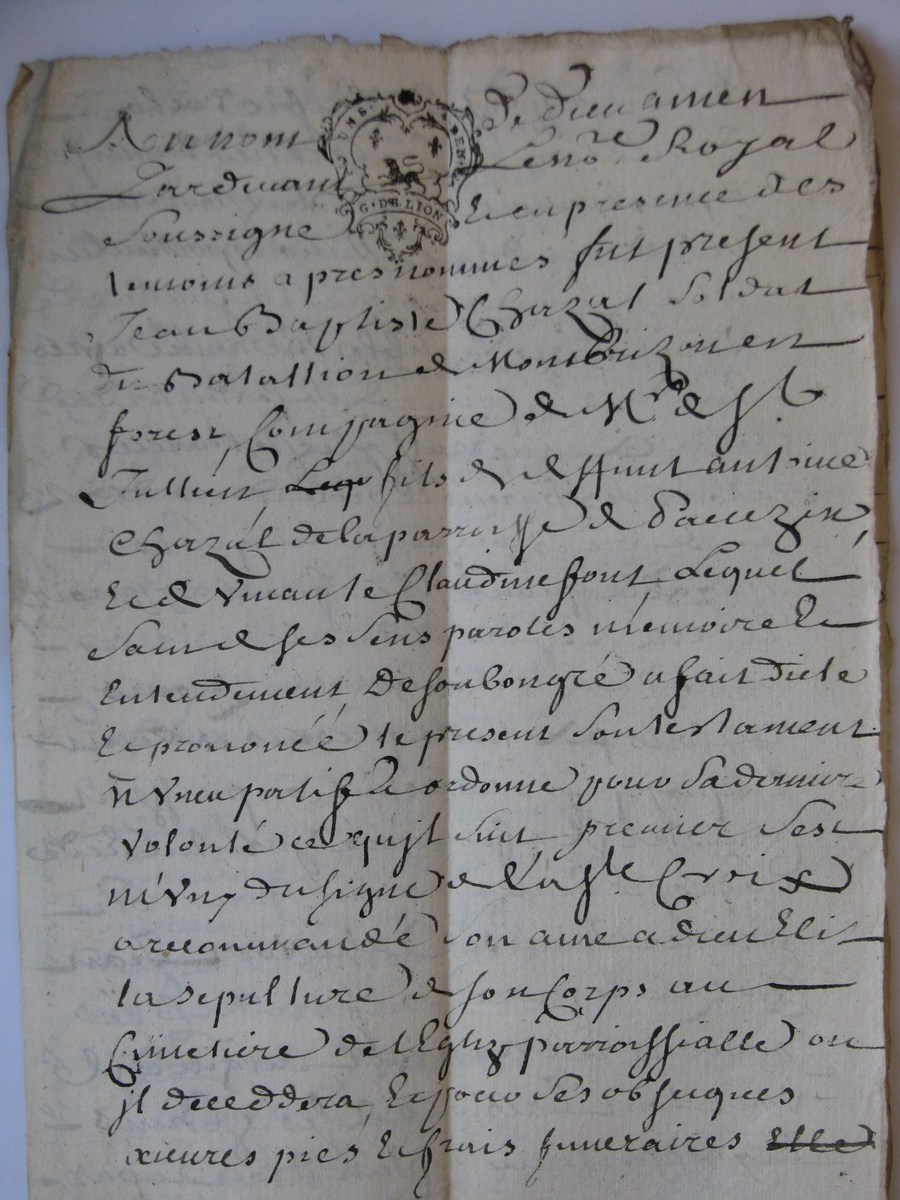 Au nom de dieu amen
Pardevant Le no.re Royal
Soussigne Et en presence des
temoins apres nommes fut present
Jean Baptiste Chazal soldat
du Batallion de Montbrizon en
forest, Compagnie de Mr de St
Jullien fils de deffunt antoine
Chazal de la parroisse de Pavezin
Et de vivante Claudine font Lequel
Sain de ses sens paroles mémoire Et
Entendement De son bon gré a fait dicte
Et prononcé le present son testament
Nuncupatif Et ordonne pour sa derniere
volonté ce qu'jl suit premier s'est
muny du signe de la Ste Croix
a recommandé son ame a dieu Elit
la sepulture de son Corps au
Cimetiere de l'Eglize parroissialle ou
jl deceddera, Et pour ses obseques
œuvres pies Et frais funeraires
G. DE LION